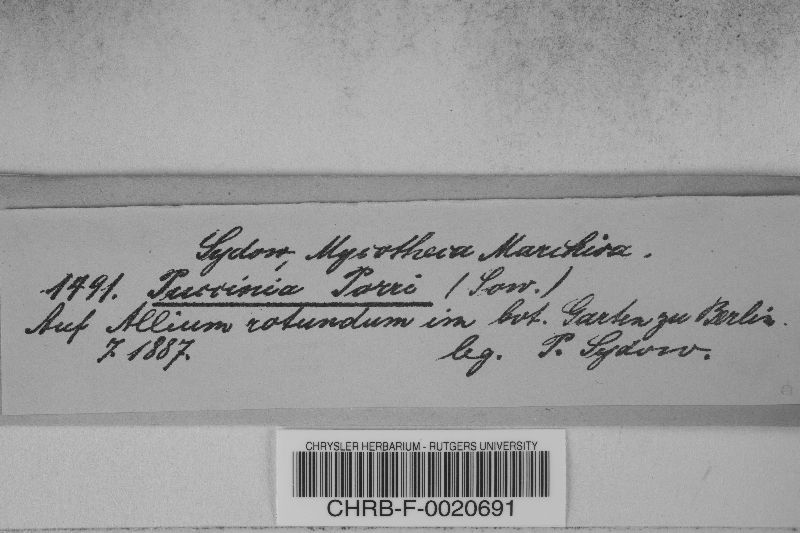 Sydow, Mycotheca Marchica.
1491. Puccinia Porri (Sow.)
Auf Allium rotundum im bot. Garten zu Berlin.
7. 1887. leg. P. Sydow.
CHRYSLER HERBARIUM - RUTGERS UNIVERSITY
CHRB-F-0020691